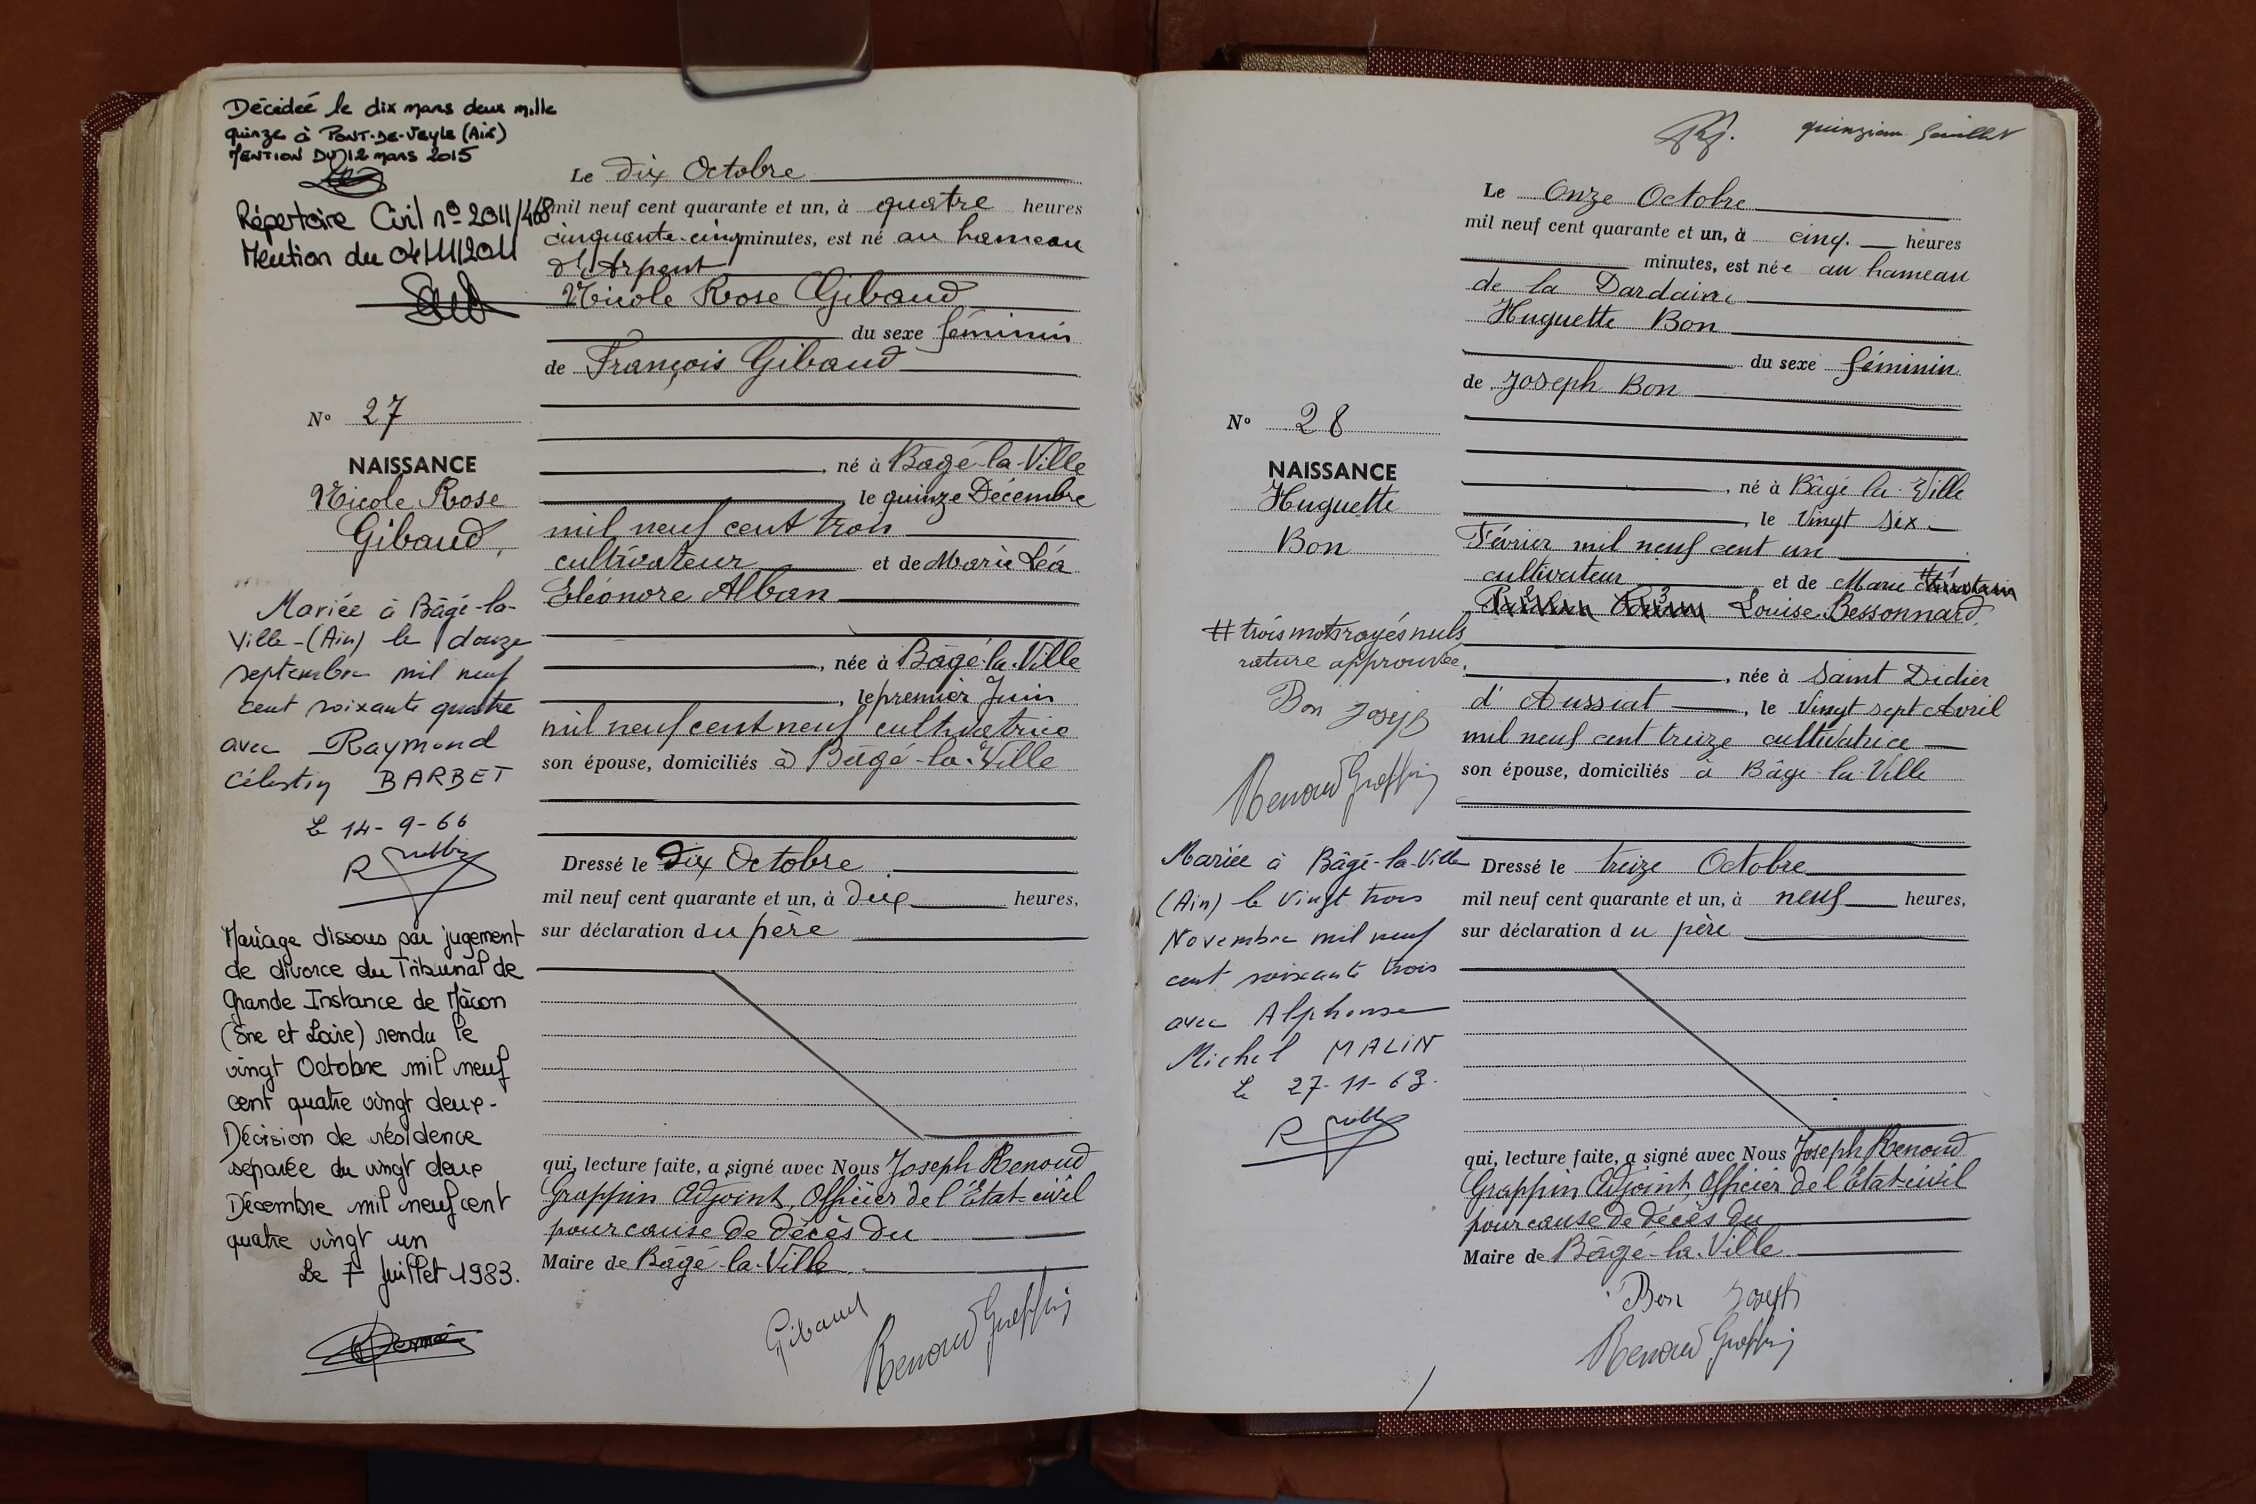 Décédée le dix mars deux mille
quinze à PONT-DE-VEYLE (Ain)
MENTION DU 12 mars 2015
Répertoire Civil n° 2011/468
Mention du 04/11/2011
Le dix Octobre
mil neuf cent quarante et un, à quatre heures
cinquante-cinq minutes, est né au hameau
d'Arpent
Nicole Rose Gibaud
du sexe féminin
de François Gibaud
N° 27
NAISSANCE
Nicole Rose
Gibaud,
, né à Bâgé-la-Ville
, le quinze Décembre
mil neuf cent trois
cultivateur et de Marie Léa
Eléonore Alban
, née à Bâgé-la-Ville
, le premier Juin
mil neuf cent neuf cultivatrice
son épouse, domiciliés à Bâgé-la-Ville
Mariée à Bâgé-la-
Ville-(Ain) le douze
septembre mil neuf
cent soixante quatre
avec Raymond
Célestin BARBET
Le 14-9-66
Dressé le dix Octobre
mil neuf cent quarante et un, à dix heures,
sur déclaration du père
Mariage dissous par jugement
de divorce du Tribunal de
Grande Instance de Mâcon
(Sne et Loire) rendu le
vingt Octobre mil neuf
cent quatre vingt deux-
Décision de résidence
séparée du vingt deux
Décembre mil neuf cent
quatre vingt un
Le 7 Juillet 1983.
qui, lecture faite, a signé avec Nous Joseph Renoud
Grappin Adjoint, Officier de l'Etat-civil
pour cause de décès du
Maire de Bâgé-la-Ville
Gibaud
Renoud Grappin
quinzième feuillet
Le Onze Octobre
mil neuf cent quarante et un, à cinq heures
minutes, est née au hameau
de la Dardaine
Huguette Bon
du sexe féminin
de Joseph Bon
N° 28
NAISSANCE
Huguette
Bon
, né à Bâgé la Ville
, le Vingt six
Février mil neuf cent un
cultivateur et de Marie
Louise Bessonnard
# trois mots rayés nuls
rature approuvée.
Bon Joseph
Renoud Grappin
, née à Saint Didier
d'Aussiat, le Vingt sept Avril
mil neuf cent treize cultivatrice
son épouse, domiciliés à Bâgé-la-Ville
Mariée à Bâgé-la-Ville
(Ain) le Vingt trois
Novembre mil neuf
cent soixante trois
avec Alphonse
Michel MALIN
Le 27-11-63.
Dressé le treize Octobre
mil neuf cent quarante et un, à neuf heures,
sur déclaration du père
qui, lecture faite, a signé avec Nous Joseph Renoud
Grappin Adjoint, Officier de l'Etat-civil
pour cause de décès du
Maire de Bâgé-la-Ville
Bon Joseph
Renoud Grappin